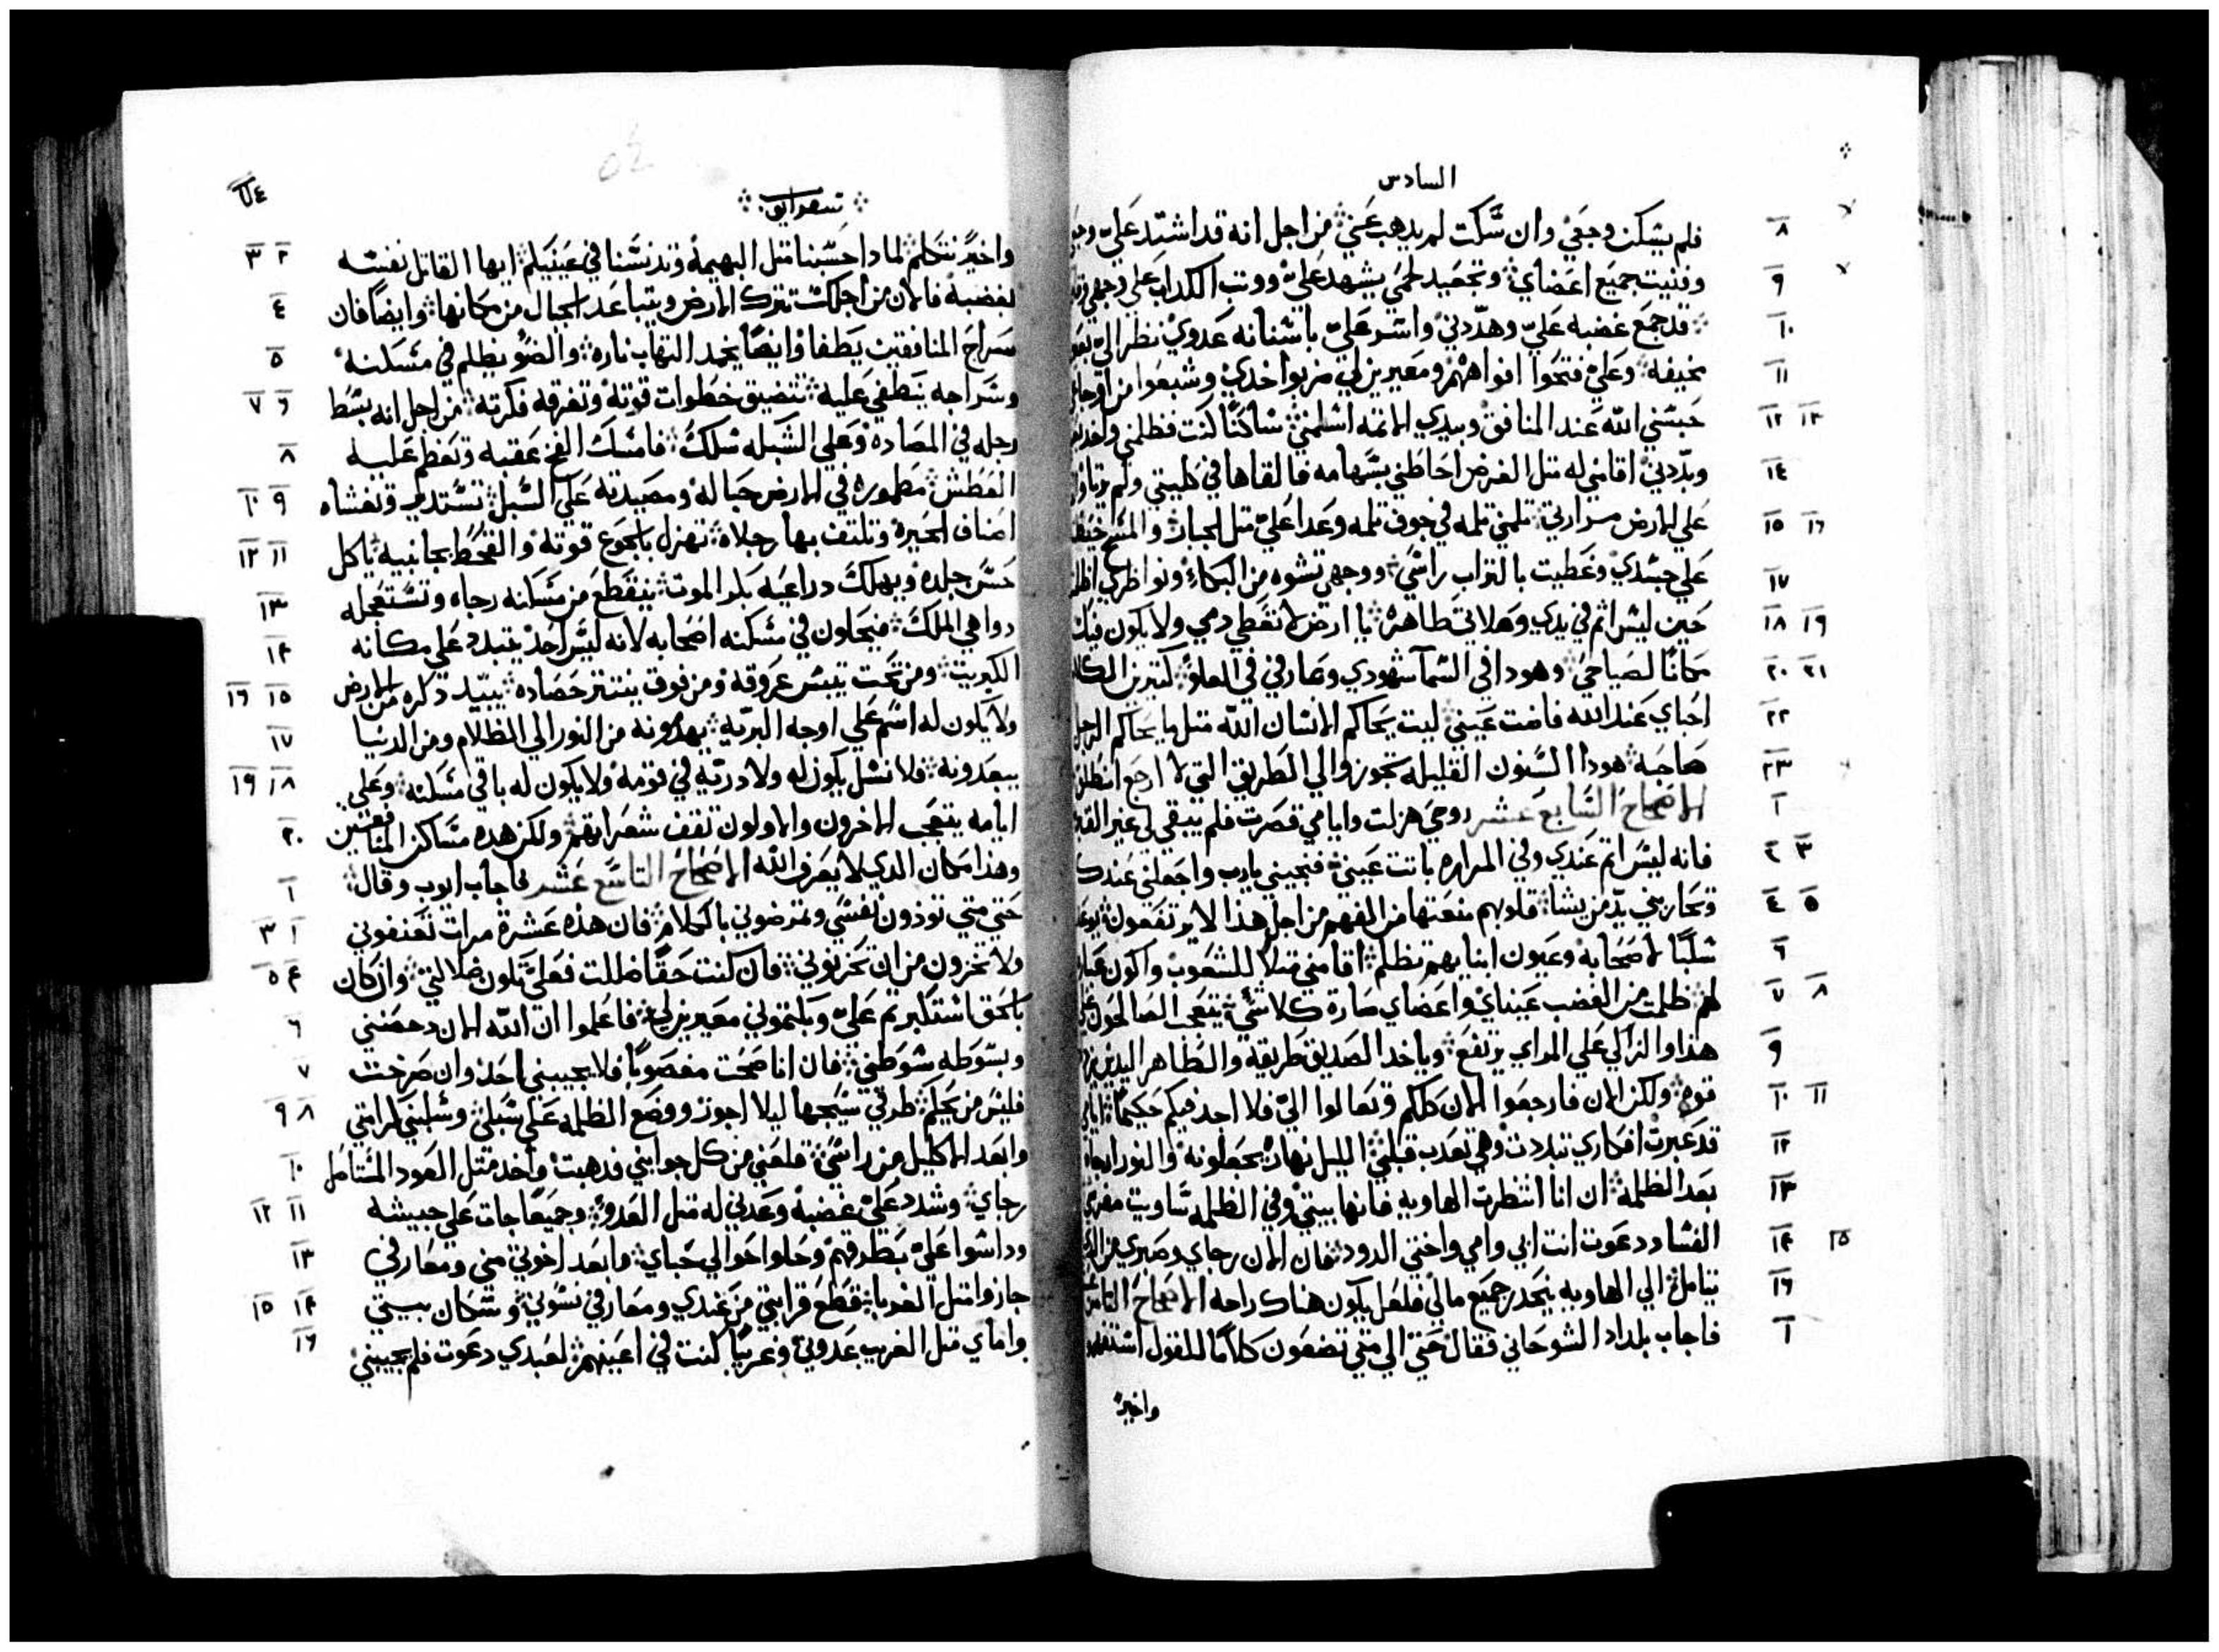 السادس
فلم يسكن وجعي وان سكت لم يدهب عني من اجل انه قد اشتد علي
٨
وفنيت جميع اعضاي وتجعيد لحمي يشهد علي ووتب الكداب علي وجهي
٩
قد جمع غضبه علي وهددني واسر علي باسنانه عدوي نظر الي
١٠
مخيفه وعلي فتحوا افواههم ومعيرين لي ضربوا خدي وشبعوا من اوجاعي
١١
حبسني الله عند المنافق وبيدي الاتمه اسلمني ساكنا كنت فظلمني
١٢ ١٣
وبددني اقامني له متل الغرض احاطني بسهامه فالقاها في كليتي ولم
١٤
علي الارض مرارتي تلمني تلمه في جوف تلمه وعدا علي متل الجبار والمسح
١٥ ١٦
علي جسدي وغطيت بالتراب راسي ووجهي تشوه من البكاء ونواظري
١٧
حين ليس اتم في يدي وصلاتي طاهره يا ارض لا تغطي دمي ولا يكون فيك
١٨ ١٩
مكانا لصياحي وهودا في السما شهودي وعارفي في العلو كتيرين الكلام
٢٠ ٢١
احباي عند الله فاضت عيني ليت يحاكم الانسان الله متل ما يحاكم الرجل
٢٢
صاحبه هودا السنون القليله تجوز والي الطريق التي لا ارجع انطلق
٢٣
الاصحاح السابع عشر روحي هزلت وايامي قصرت فلم يبقي لي غير القبر
١
فانه ليس اتم عندي وفي المراره باتت عيني فنجيني يارب واجعلني عندك
٢ ٣
وتحاربني يد من يشا قلوبهم منعتها من الفهم من اجل هذا لا يرتفعون
٤ ٥
سلبا لاصحابه وعيون ابنايهم تظلم اقامني متلا للشعوب واكون
٦
لهم ظلمت من الغضب عيناي واعضاي صارة كلا شي يتعجب الصالحون
٧ ٨
هذا والزالي علي المراي يرتفع وياخد الصديق طريقه والطاهر اليدين
٩
قوه ولكن الان فارجعوا الان كلكم وتعالوا الي فلا اجد فيكم حكيما
١٠ ١١
قد عبرت افكاري تبلدت وهي تعدب قلبي الليل نهارا يجعلونه والنور
١٢
بعد الظلمه ان انا انتظرت الهاويه فانها بيتي وفي الظلمه ساويت
١٣
الفساد دعوت انت ابي وامي واختي الدود فان الان رجاي وصبري
١٤ ١٥
يتامل الي الهاويه ينحدر جميع مالي فلعل يكون هناك راحه الاصحاح التامن
١٦
فاجاب بلداد الشوحاني فقال حتي الي متي تضعون كلاما للقول
١
واخيرا
سفر ايوب
واخيرا نتكلم لمادا حسبنا متل البهيمه وتدنسنا في عينيكم ايها القاتل نفسه
٢ ٣
بغضبه فالان من اجلك تترك الارض ويتباعد الجبال من مكانها وايضا فان
٤
سراج المنافقين يطفا وايضا يخمد التهاب ناره والضو يظلم في مسكنه
٥
وسراجه ينطفي عليه تتضيق خطوات قوته وتفرقه فكرته من اجل انه بسط
٦ ٧
رجله في المصاده وعلي الشبكه سلك فامسك الفخ عقبه وتعظم عليه
٨
العطش مطموره في الارض حباله ومصيدته علي السبل تستدير وتغشاه
٩ ١٠
اصناف الحيره وتلتف بها رجلاه تهزل بالجوع قوته والقحط بجانبيه ياكل
١١ ١٢
حسن جلده ويهلك دراعيه بكر الموت ينقطع من مسكنه رجاه وتستعجله
١٣
دواهي الملك فيحلون في مسكنه اصحابه لانه ليس احد يتبدد علي مكانه
١٤
الكبريت ومن تحت تيبس عروقه ومن فوق ينتتر حصاده يبيد دكره من الارض
١٥ ١٦
ولا يكون له اسم علي اوجه البريه يهدونه من النور الي الظلام ومن الدنيا
١٧
يبعدونه فلا نسل يكون له ولا دريه في قومه ولا يكون له باقي مسكنه وعلي
١٨ ١٩
ايامه يتعجب الاخرون والاولون تقف شعرايهم ولكن هده مساكن المنافقين
٢٠
وهذا مكان الدي لا يعرف الله الاصحاح التاسع عشر فاجاب ايوب وقال
١
حتي متي تودون نفسي وتمرضوني بالكلام فان هذه عشرة مرات تعنفوني
٢ ٣
ولا تخزون من ان تحزنوني فان كنت حقا ضللت فعلي تكون ضلالتي وان كان
٤ ٥
بالحق استكبرتم علي وبكتموني معيرين لي فاعلموا ان الله الان دحضني
٦
وبسوطه سوطني فان انا صحت مغصوبا فلا يجيبني احد وان صرخت
٧
فليس من يحكم طرقي سيجها ليلا اجوز ووضع الظلمه علي سبلي وسلبني كرامتي
٨ ٩
وابعد الاكليل من راسي قلعني من كل جوانبي فدهبت واخد متل العود المستاصل
١٠
رجاي وشدد علي غضبه وعدني له متل العدو وجميعا جات علي جيشه
١١ ١٢
وداسوا علي بطرقهم وحلوا حوالي خباي وابعد اخوتي مني ومعارفي
١٣
جازوا متل الغربا قطع قرابتي من عندي ومعارفي نسوني وسكان بيتي
١٤ ١٥
واماي متل الغريب عدوني وغريبا كنت في اعينهم لعبدي دعوت فلم يجيبني
١٦